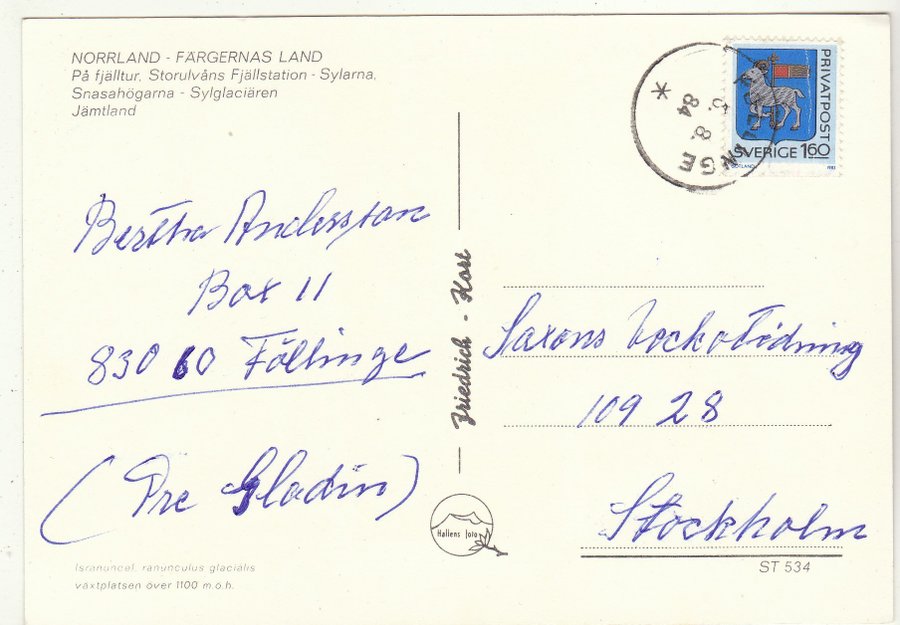 NORRLAND - FÄRGERNAS LAND
På fjälltur. Storulvåns Fjällstation - Sylarna,
Snasahögarna - Sylglaciären
Jämtland
Bertha Andersson
Box 11
830 60 Föllinge
(Pre Gladin)
Isranuncel, ranunculus glacialis
växtplatsen över 1100 m.ö.h.
Friedrich - Kort
Hallens foto
PRIVATPOST
SVERIGE 160
1983
8. 84
Saxons VeckoTidning
109 28
Stockholm
ST 534